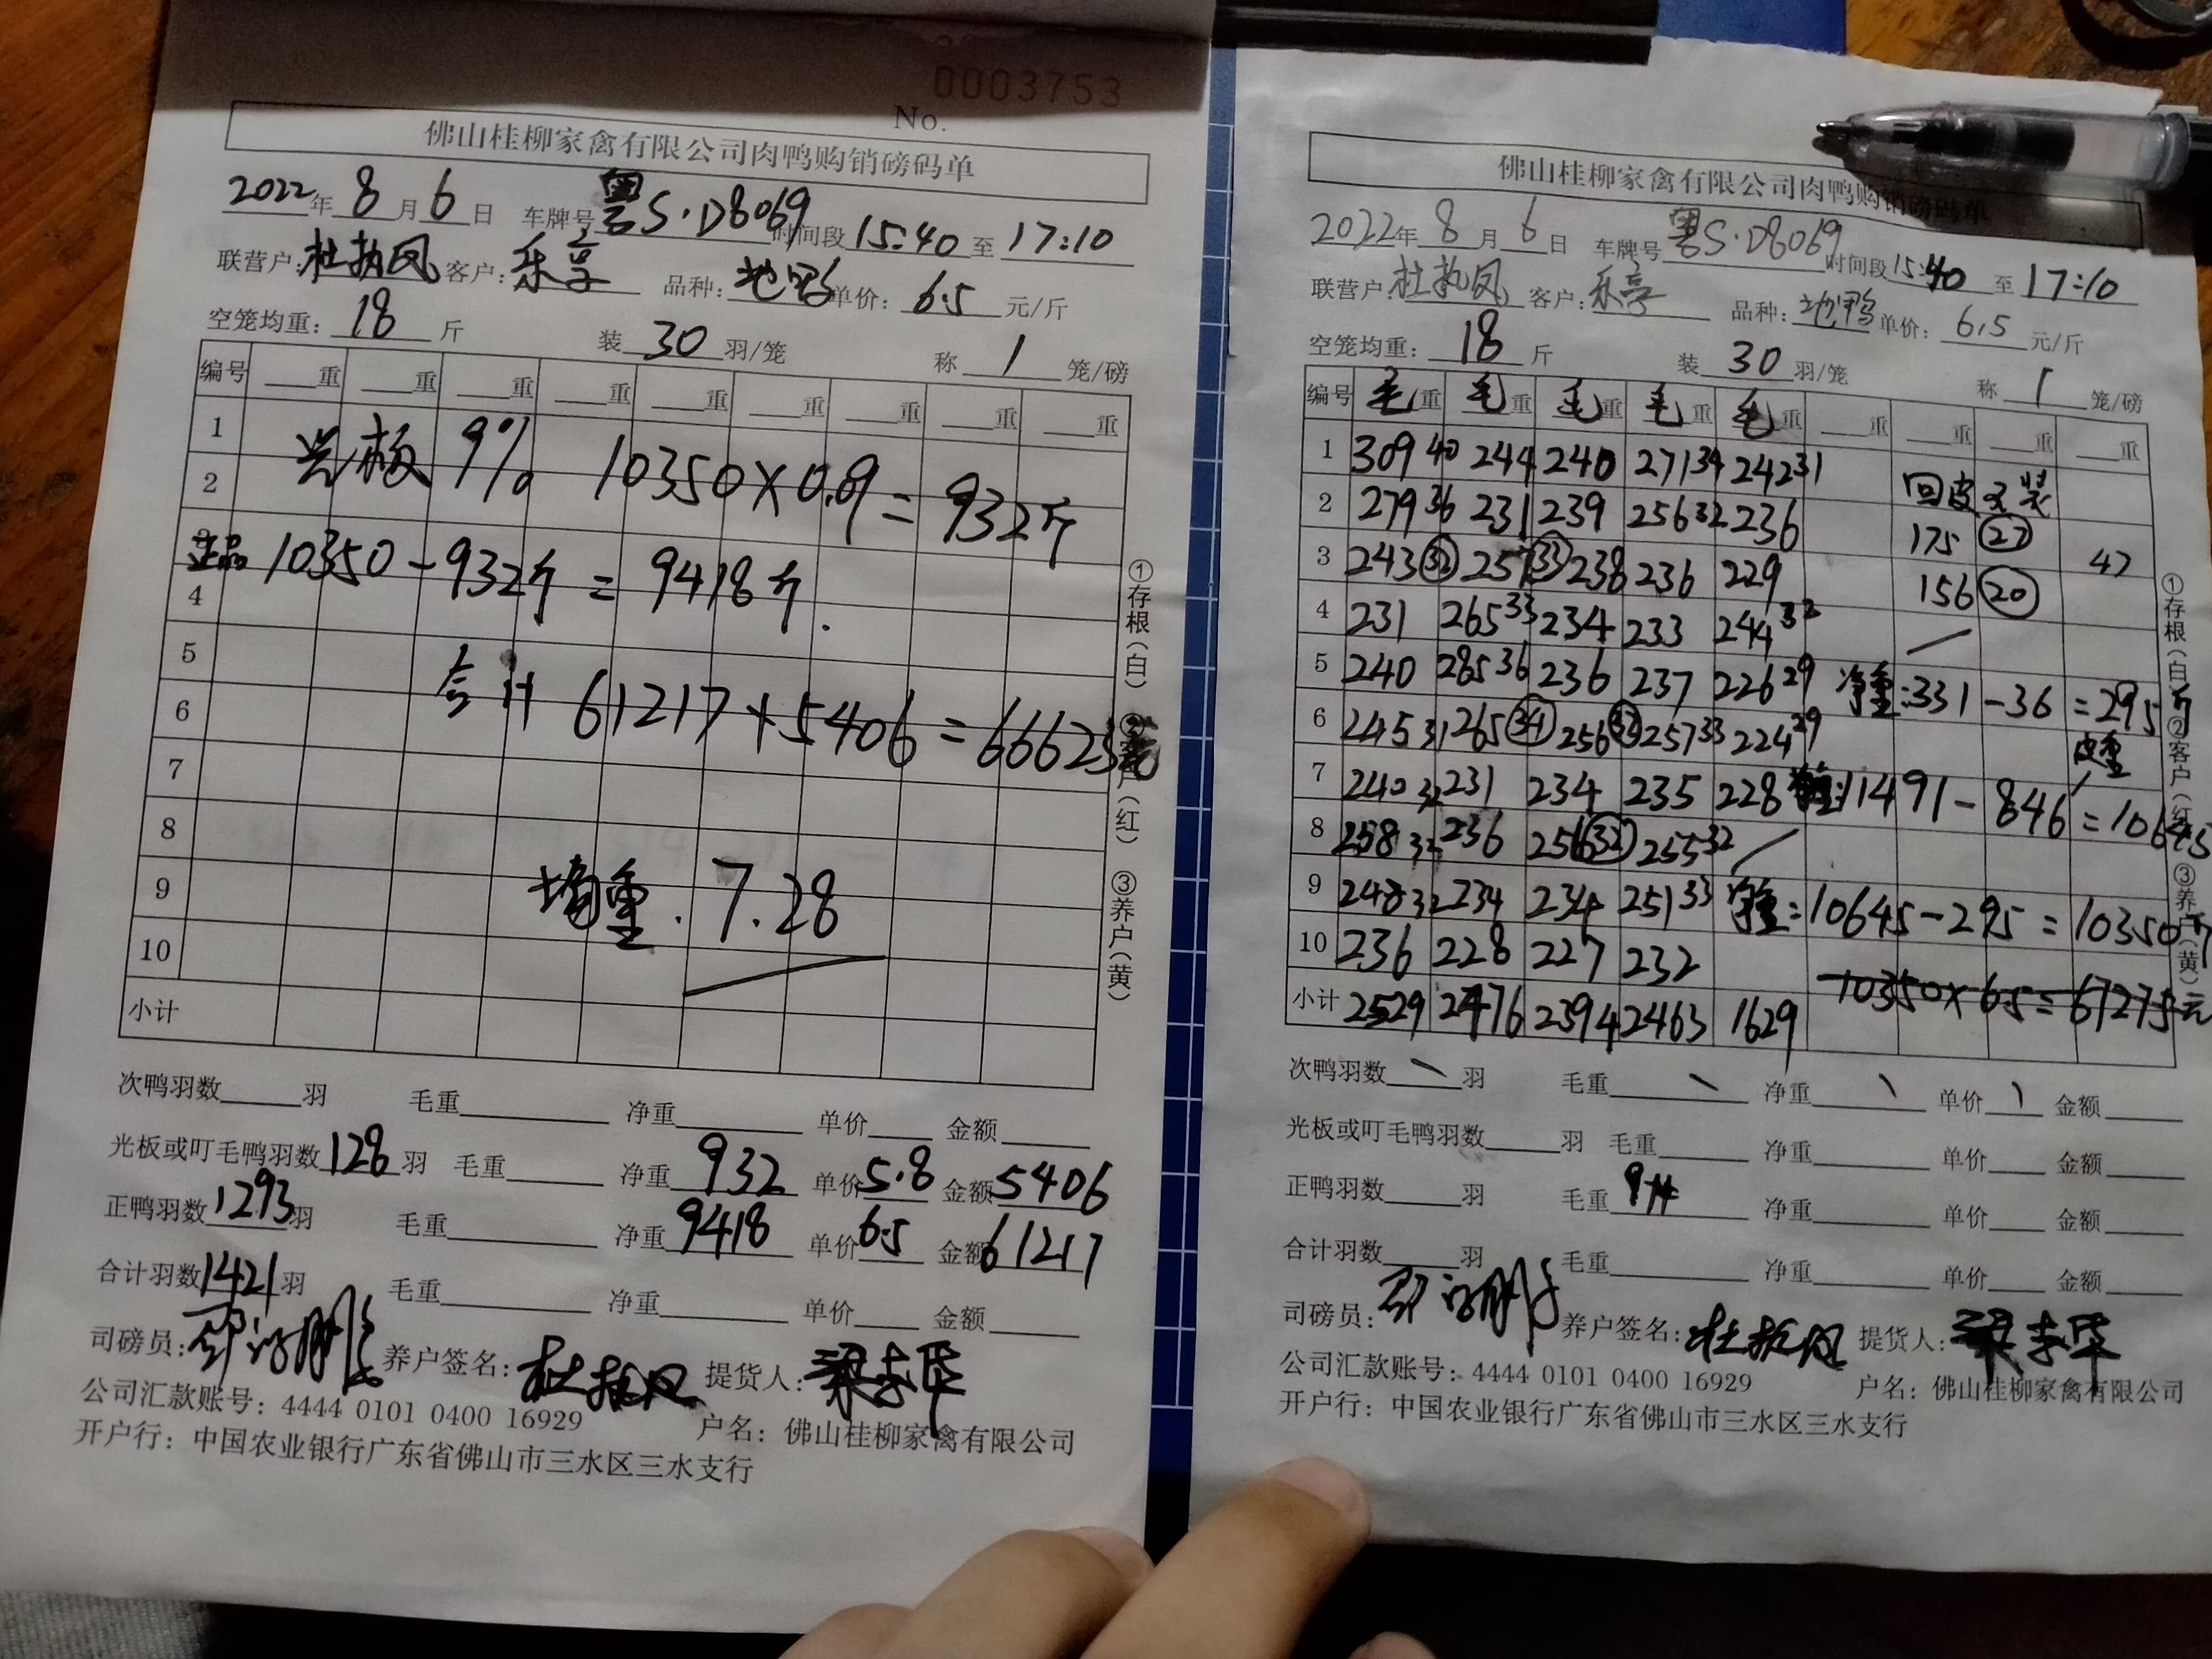 0003753
No.
佛山桂柳家禽有限公司肉鸭购销磅码单
2022年 8 月 6 日 车牌号 粤S·D8069 时间段 15:40 至 17:10
联营户: 杜执凤 客户: 乐享 品种: 地鸭 单价: 6.5 元/斤
空笼均重: 18 斤 装 30 羽/笼 称 1 笼/磅
编号 重 重 重 重 重 重 重 重 重
1 光板 9% 10350×0.09=932斤
2
3 正品 10350-932斤=9418斤.
4
5
6 合计 61217+5406=66623元
7
8
9 均重. 7.28
10
小计
次鸭羽数 羽 毛重 净重 单价 金额
光板或叮毛鸭羽数 128 羽 毛重 净重 932 单价 5.8 金额 5406
正鸭羽数 1293 羽 毛重 净重 9418 单价 6.5 金额 61217
合计羽数 1421 羽 毛重 净重 单价 金额
司磅员: 养户签名: 杜执凤 提货人:
公司汇款账号: 4444 0101 0400 16929 户名: 佛山桂柳家禽有限公司
开户行: 中国农业银行广东省佛山市三水区三水支行
①存根(白) ②客户(红) ③养户(黄)
佛山桂柳家禽有限公司肉鸭购销磅码单
2022年 8 月 6 日 车牌号 粤S·D8069 时间段 15:40 至 17:10
联营户: 杜执凤 客户: 乐享 品种: 地鸭 单价: 6.5 元/斤
空笼均重: 18 斤 装 30 羽/笼 称 1 笼/磅
编号 毛重 毛重 毛重 毛重 毛重 重 重 重 重
1 309 40 244 240 271 34 242 31
2 279 36 231 239 256 32 236 回皮 又装
3 243 32 257 33 238 236 229 175 27 47
4 231 265 33 234 233 244 32 156 20
5 240 285 36 236 237 226 29 净重:331-36=295斤
6 245 31 265 34 256 32 257 33 224 29 皮重
7 240 32 231 234 235 228 11491-846=10645
8 258 32 236 256 32 255 32
9 248 32 234 234 251 33 净重:10645-295=10350斤
10 236 228 227 232
小计 2529 2476 2394 2463 1629 10350×6.5=67275元
次鸭羽数 羽 毛重 净重 单价 金额
光板或叮毛鸭羽数 羽 毛重 净重 单价 金额
正鸭羽数 羽 毛重 净重 单价 金额
合计羽数 羽 毛重 净重 单价 金额
司磅员: 养户签名: 杜执凤 提货人:
公司汇款账号: 4444 0101 0400 16929 户名: 佛山桂柳家禽有限公司
开户行: 中国农业银行广东省佛山市三水区三水支行
①存根(白) ②客户(红) ③养户(黄)